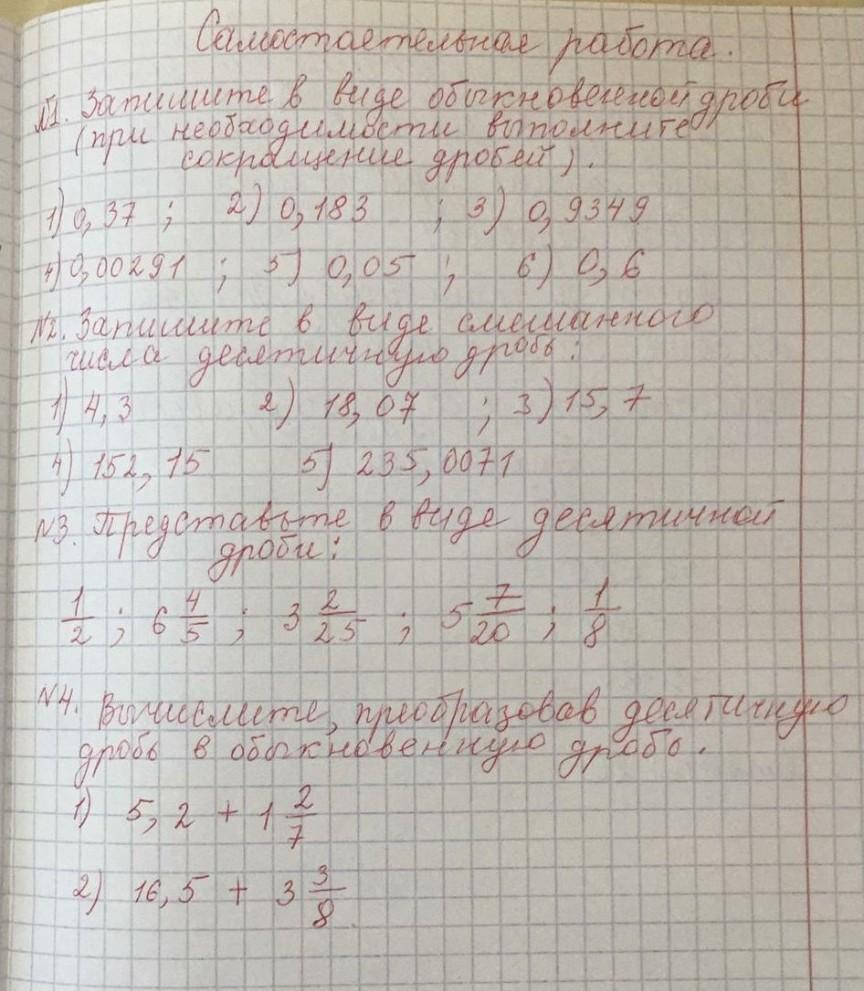 Самостоятельная работа.
№1. Запишите в виде обыкновенной дроби
(при необходимости выполните
сокращение дробей).
1) 0,37 ; 2) 0,183 ; 3) 0,9349
4) 0,00291 ; 5) 0,05 ; 6) 0,6
№2. Запишите в виде смешанного
числа десятичную дробь:
1) 4,3 2) 18,07 ; 3) 15,7
4) 152,15 5) 235,0071
№3. Представьте в виде десятичной
дроби:
1/2 ; 6 4/5 ; 3 2/25 ; 5 7/20 ; 1/8
№4. Вычислите, преобразовав десятичную
дробь в обыкновенную дробь.
1) 5,2 + 1 2/7
2) 16,5 + 3 3/8